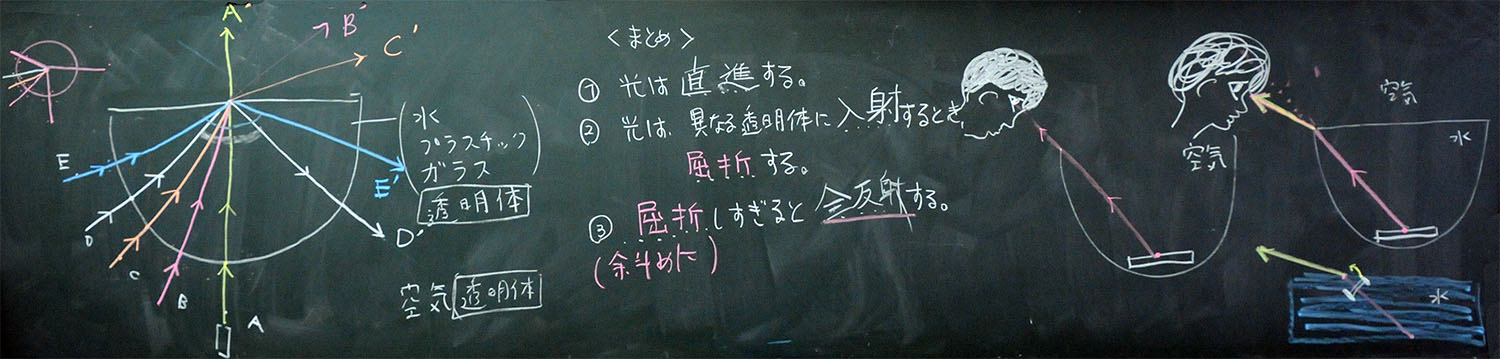 A'
B'
C'
E
D
C
B
A
E'
D'
水
プラスチック
ガラス
透明体
空気 透明体
<まとめ>
① 光は直進する。
② 光は、異なる透明体に入射するとき、
屈折する。
③ 屈折しすぎると全反射する。
(斜めに)
空気
空気
水
水